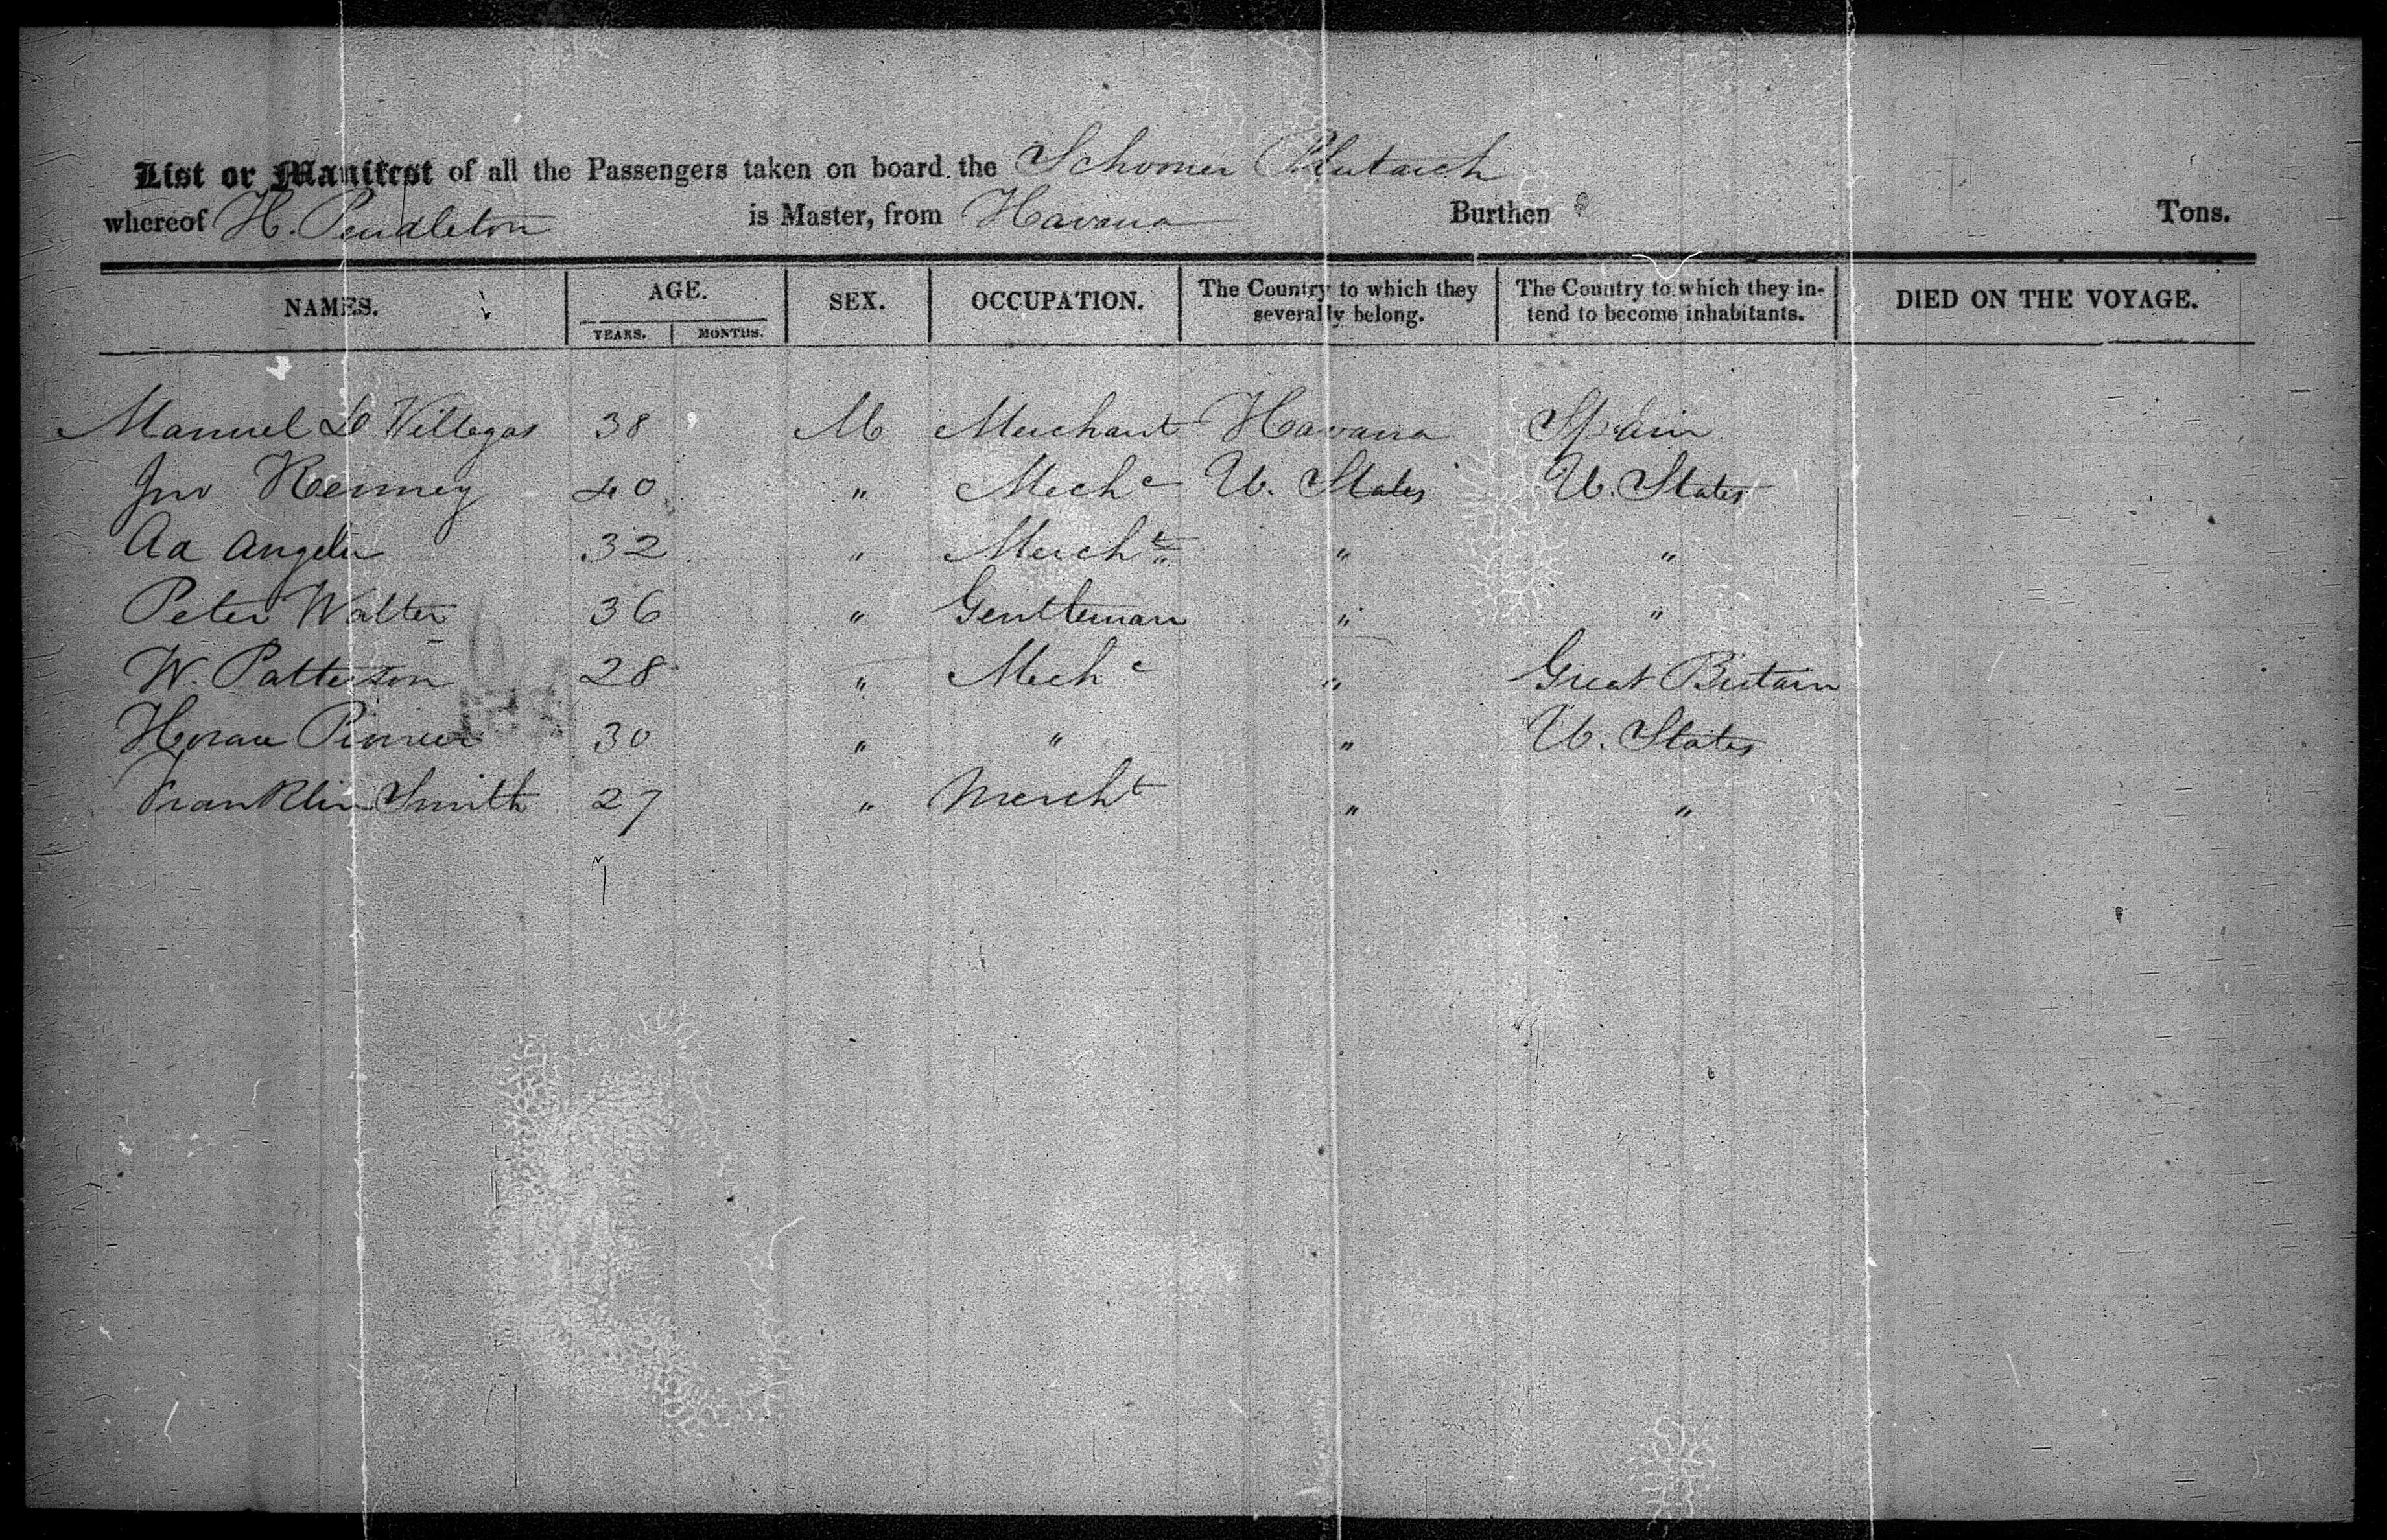 List or Manifest of all the Passengers taken on board the Schooner Plutarch
whereof H. Pendleton is Master, from Havana Burthen Tons.
NAMES. AGE. SEX. OCCUPATION. The Country to which they severally belong. The Country to which they intend to become inhabitants. DIED ON THE VOYAGE.
YEARS. MONTHS.
Manuel D Villegas 38 M Merchant Havana Spain
Jno Kenney 40 " Mechc U. States U. States
Aa Angelu 32 " Mercht " "
Peter Walter 36 " Gentleman " "
W. Patterson 28 " Mechc " Great Britain
Horace 30 " " " U. States
Franklin Smith 27 " Mercht " "